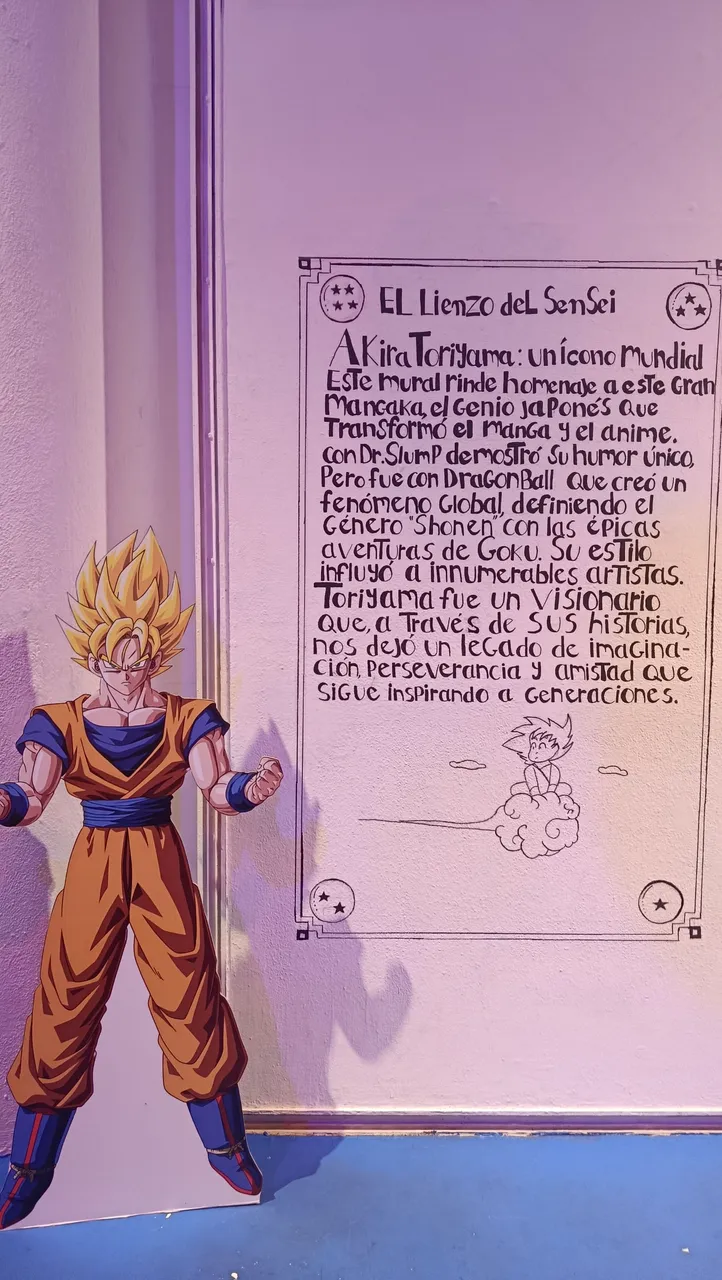 EL Lienzo deL SenSei
AKira Toriyama: un ícono mundial
Este mural rinde homenaje a este Gran
Mangaka, el Genio japonés que
Transformó el manga y el anime.
con Dr. Slump demostró su humor único,
Pero fue con Dragon Ball que creó un
fenómeno Global, definiendo el
Género "Shonen" con las épicas
aventuras de Goku. Su estilo
influyó a innumerables artistas.
Toriyama fue un visionario
que, a través de sus historias,
nos dejó un legado de imagina-
ción, Perseverancia y amistad que
sigue inspirando a Generaciones.